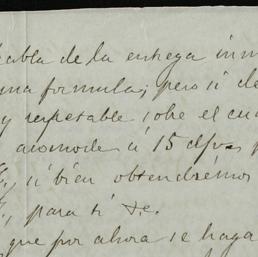 habla de la entrega inm
una formula; pero si de
y respetable sobre el cu
acomode á 15 d/v.
, si bien obtendrémos
, para ti &c.
que por ahora se haga